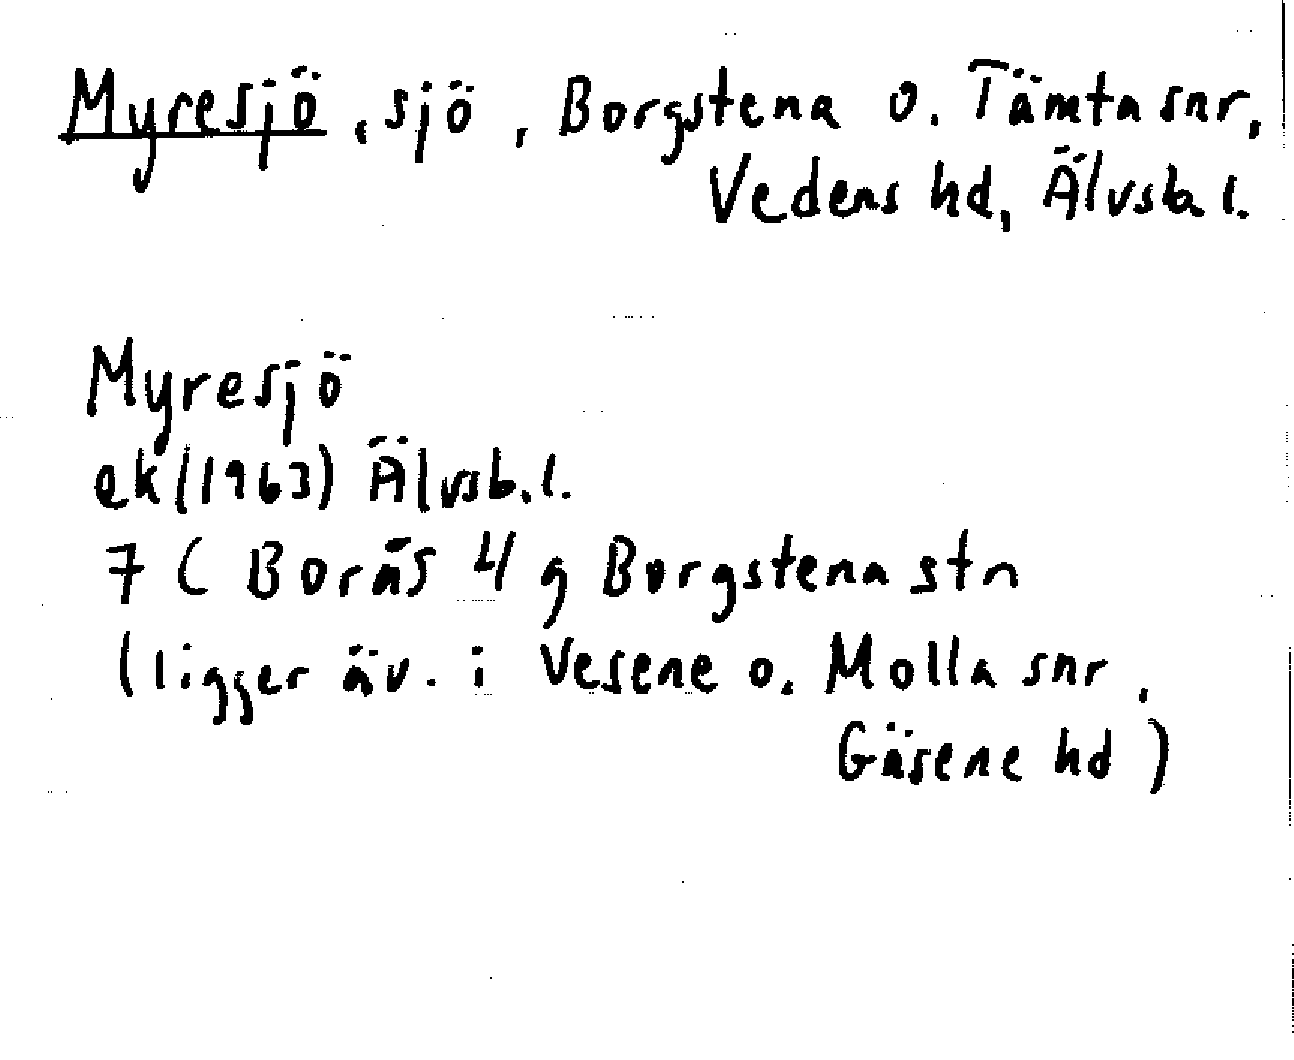 Myresjö, sjö, Borgstena o. Tämta snr,
Vedens hd, Älvsb. l.
Myresjö
ek (1963) Älvsb. l.
7 C Borås 4 g Borgstena stn
(ligger äv. i Vesene o. Molla snr,
Gäsene hd)